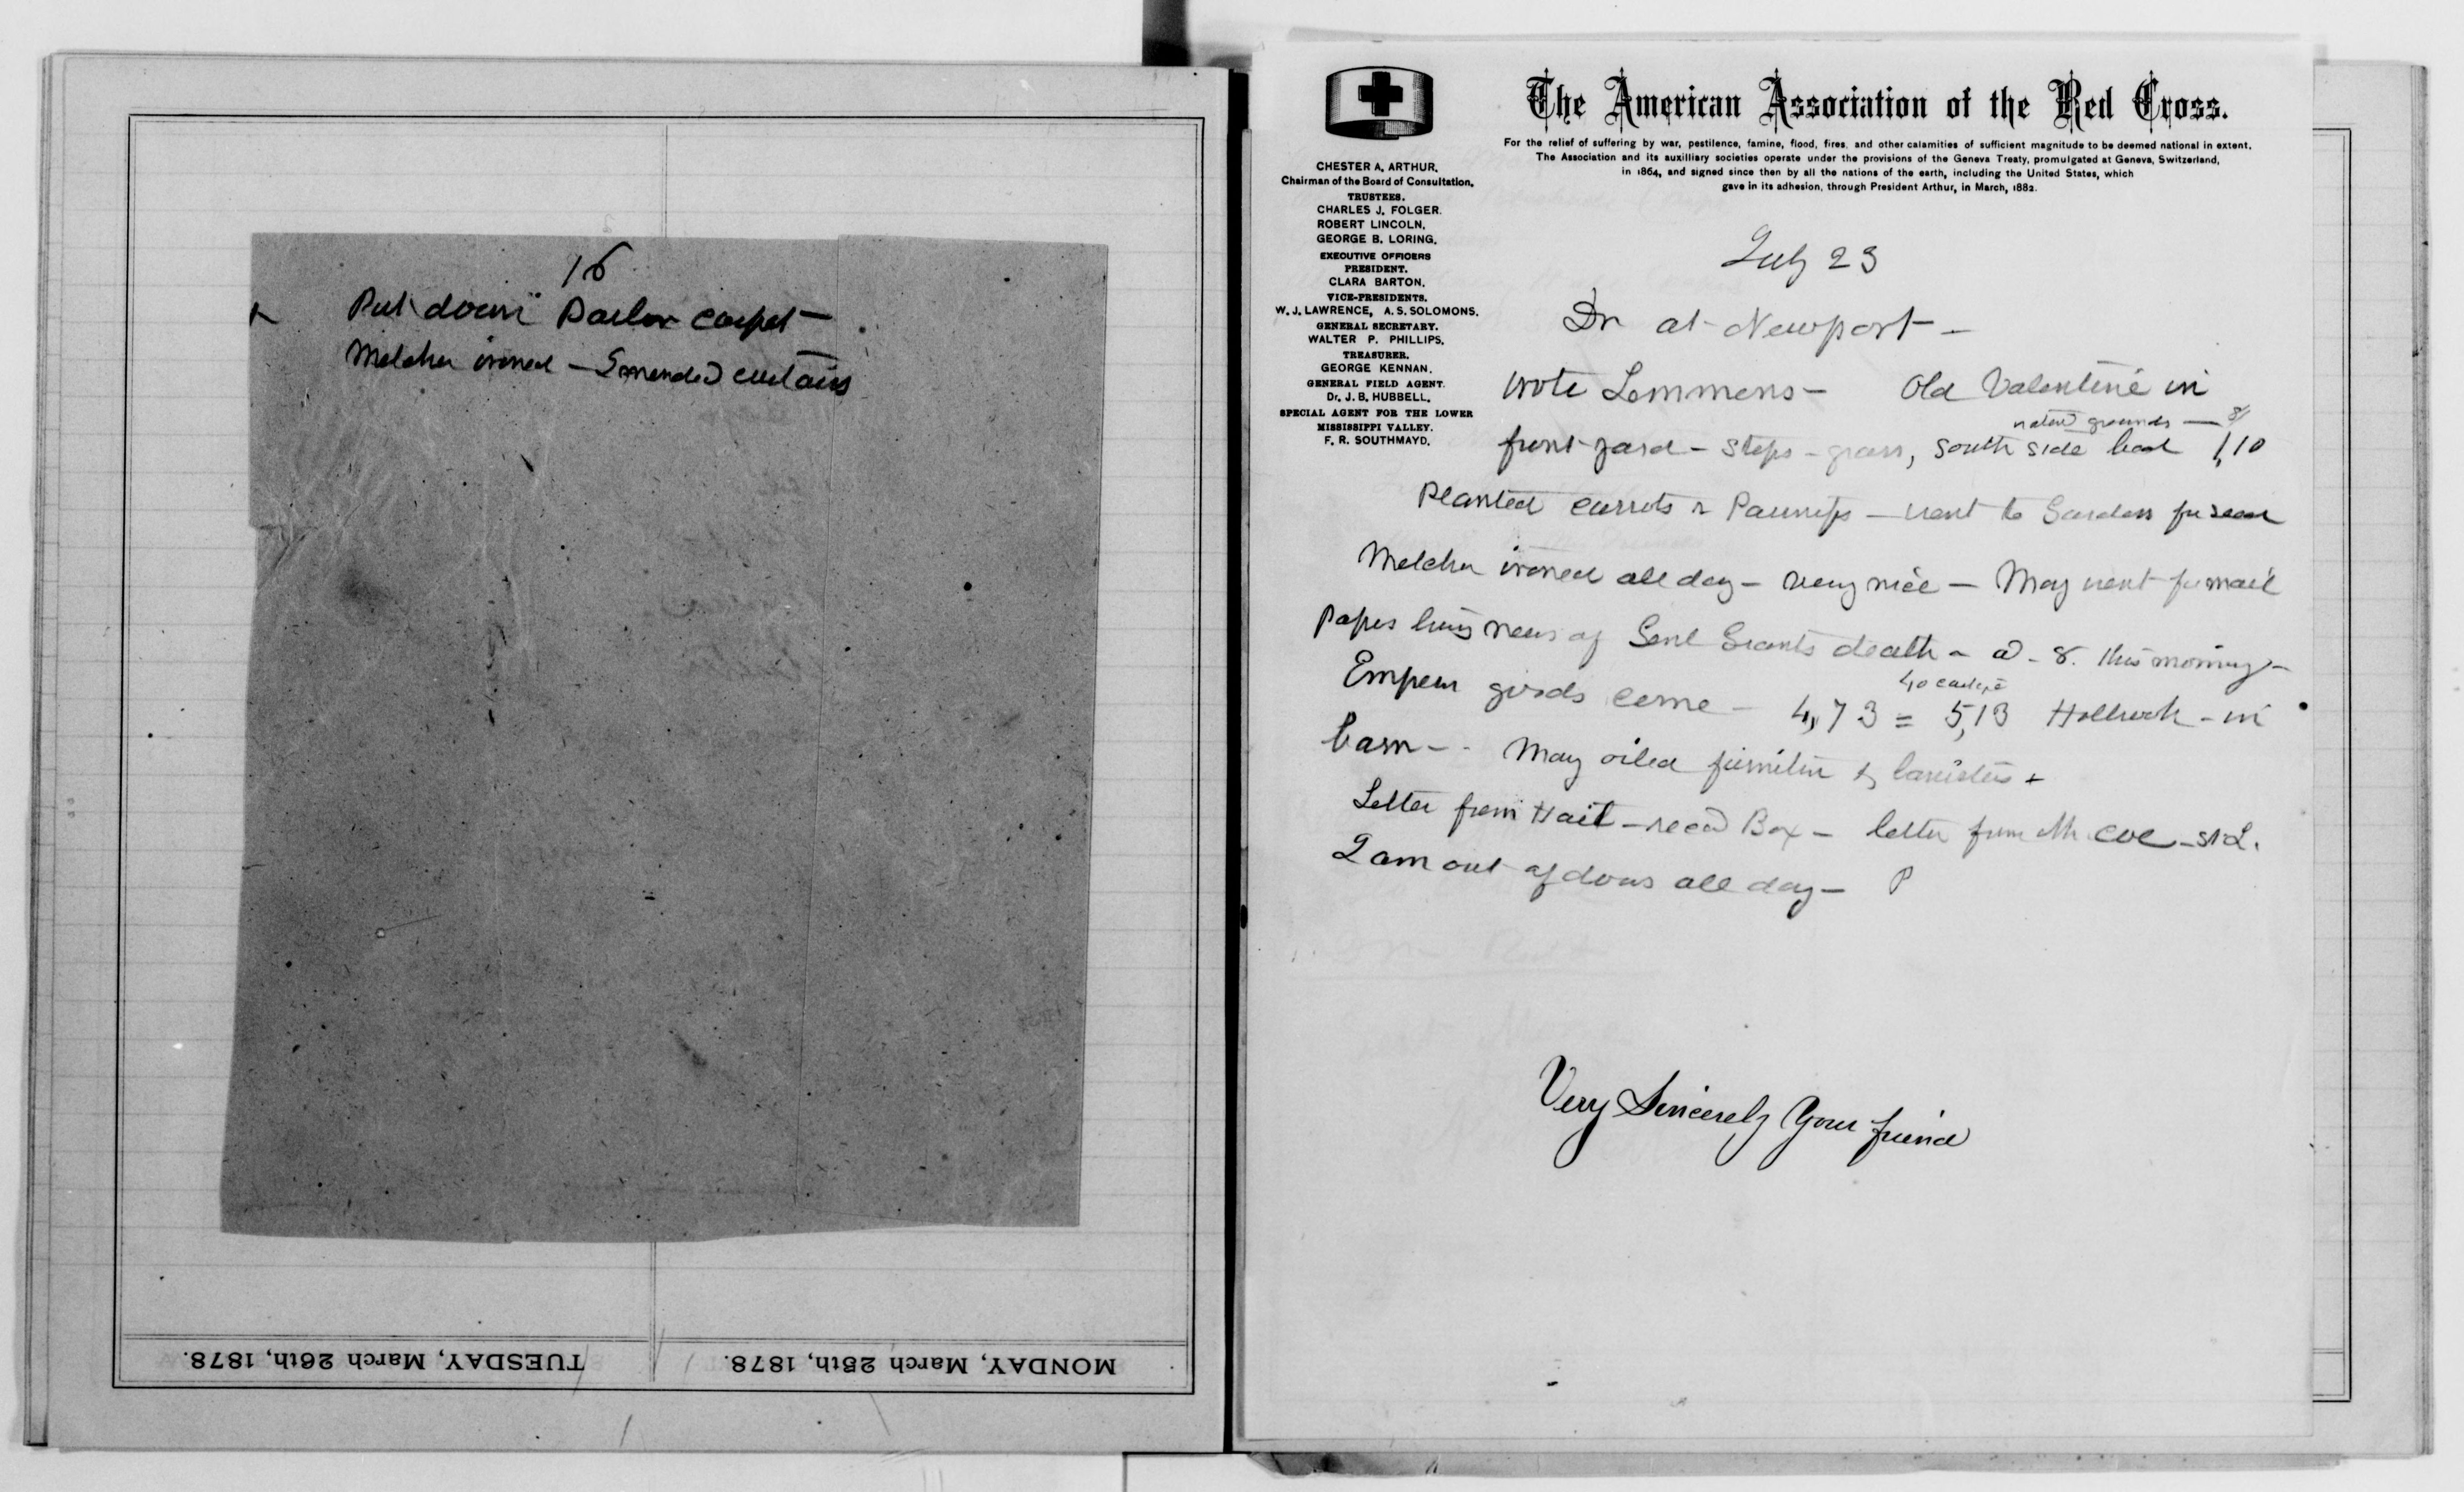 16
Put down Parlor carpet —
Melcher ironed — I mended curtains
TUESDAY, March 26th, 1878.
MONDAY, March 25th, 1878.
The American Association of the Red Cross.
For the relief of suffering by war, pestilence, famine, flood, fires, and other calamities of sufficient magnitude to be deemed national in extent.
The Association and its auxilliary societies operate under the provisions of the Geneva Treaty, promulgated at Geneva, Switzerland,
in 1864, and signed since then by all the nations of the earth, including the United States, which
gave in its adhesion, through President Arthur, in March, 1882.
CHESTER A. ARTHUR,
Chairman of the Board of Consultation.
TRUSTEES.
CHARLES J. FOLGER.
ROBERT LINCOLN.
GEORGE B. LORING.
EXECUTIVE OFFICERS
PRESIDENT.
CLARA BARTON.
VICE-PRESIDENTS.
W. J. LAWRENCE, A. S. SOLOMONS.
GENERAL SECRETARY.
WALTER P. PHILLIPS.
TREASURER.
GEORGE KENNAN.
GENERAL FIELD AGENT.
Dr. J. B. HUBBELL.
SPECIAL AGENT FOR THE LOWER
MISSISSIPPI VALLEY.
F. R. SOUTHMAYD.
July 23
Dr at Newport —
wrote Lemmens — Old Valentine in
grounds —
front yard — steps — grass, south side 1,10
Planted carrots & Parsnips — went to
Melcher ironed all day — very nice — May went for mail
Papers bring news of Genl Grants death — a - 8. this morning —
40
Goods come — 4,73 = 5,13 Holbrook — in
barn — May oiled furniture & banisters +
Letter from Hait — recd Box — letter from Mr Coe — St L.
I am out of doors all day — P
Very Sincerely Your friend